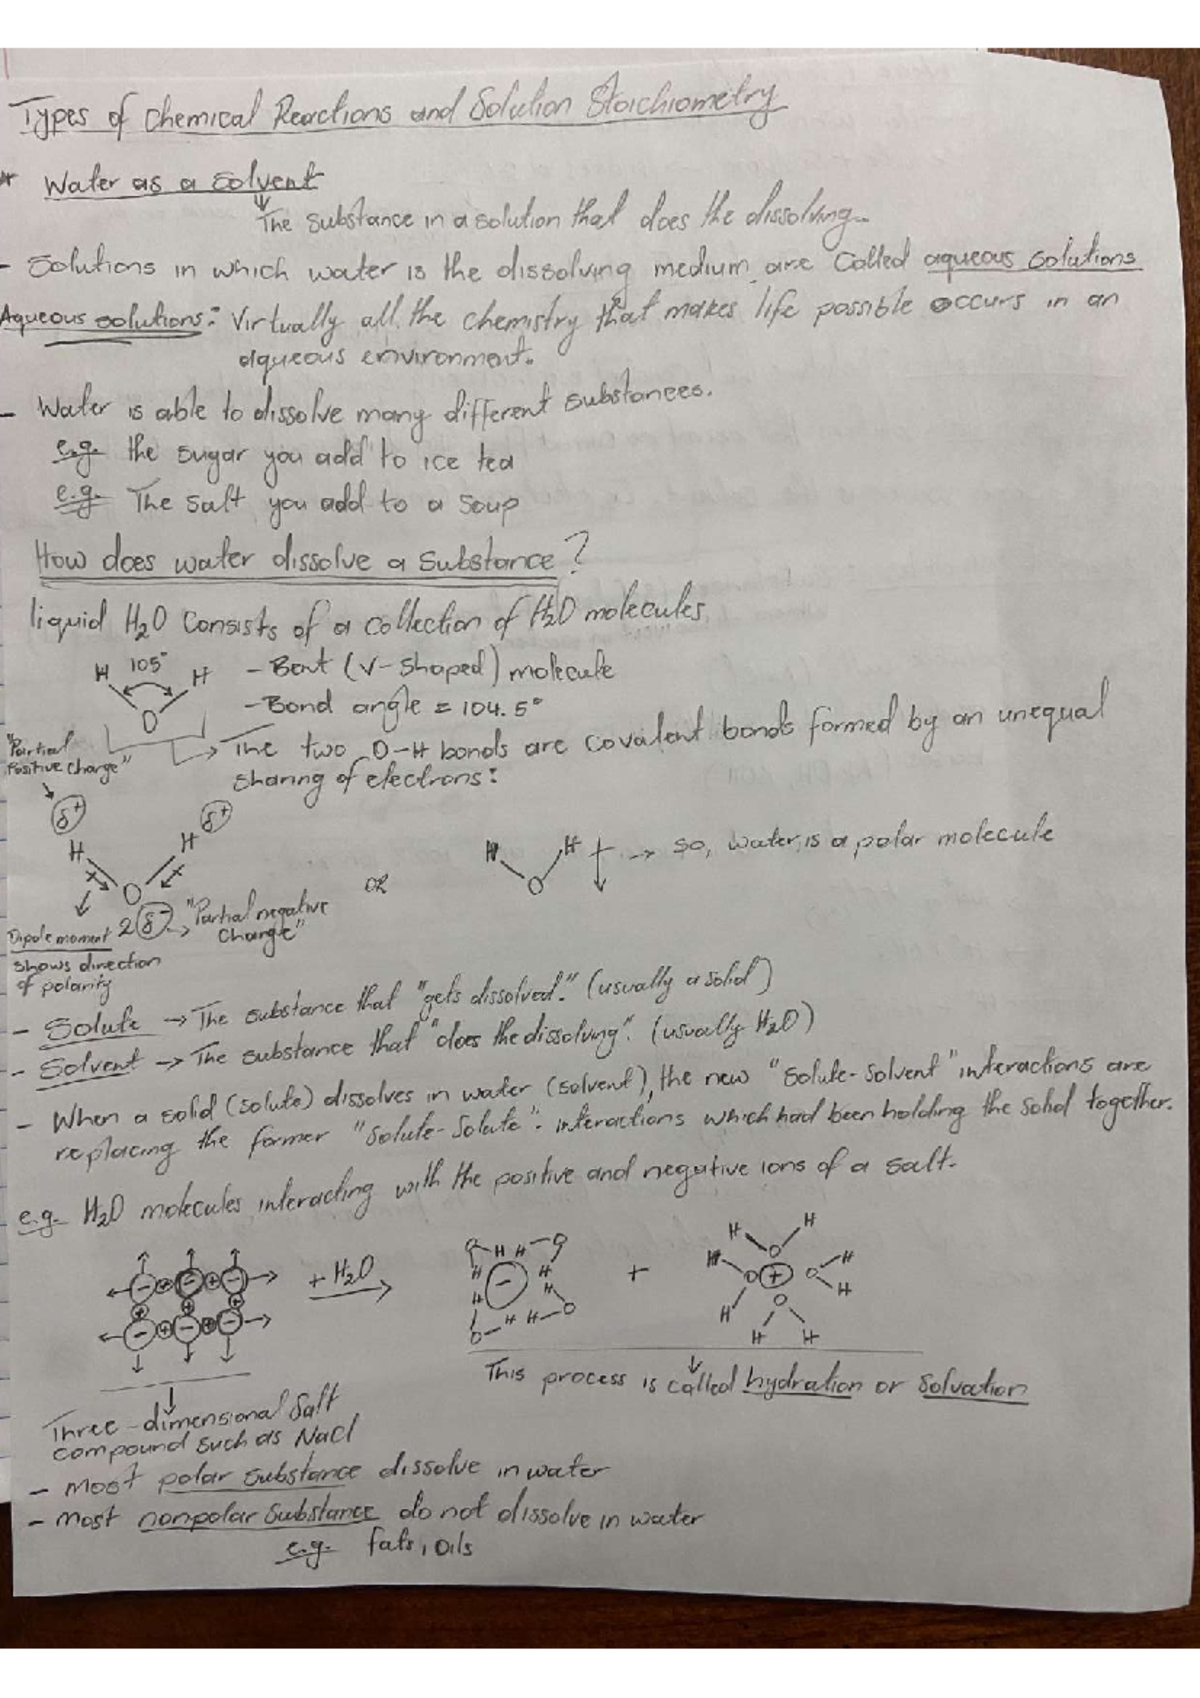 Types of Chemical Reactions and Solution Stoichiometry
* Water as a Solvent
The substance in a solution that does the dissolving.
- Solutions in which water is the dissolving medium are called aqueous solutions
Aqueous solutions: Virtually all the chemistry that makes life possible occurs in an
aqueous environment.
- Water is able to dissolve many different substances.
e.g. the sugar you add to ice tea
e.g. The salt you add to a soup
How does water dissolve a substance?
liquid H2O consists of a collection of H2O molecules,
H 105° H - Bent (V-shaped) molecule
O - Bond angle = 104.5°
"Partial Positive Charge" → The two O-H bonds are covalent bonds formed by an unequal
sharing of electrons:
δ+ δ+
H H or H H → So, water is a polar molecule
O O
2δ- → "Partial negative Charge"
Dipole moment
shows direction
of polarity
- Solute → The substance that "gets dissolved." (usually a solid)
- Solvent → The substance that "does the dissolving". (usually H2O)
- When a solid (solute) dissolves in water (solvent), the new "Solute-Solvent" interactions are
replacing the former "Solute-Solute" interactions which had been holding the solid together.
e.g. H2O molecules interacting with the positive and negative ions of a salt.
+ H2O → +
This process is called hydration or Solvation
Three-dimensional Salt
compound such as NaCl
- most polar substance dissolve in water
- most nonpolar substance do not dissolve in water
e.g. fats, oils